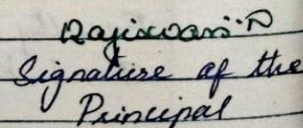 Rajiswari.R
Signature of the
Principal